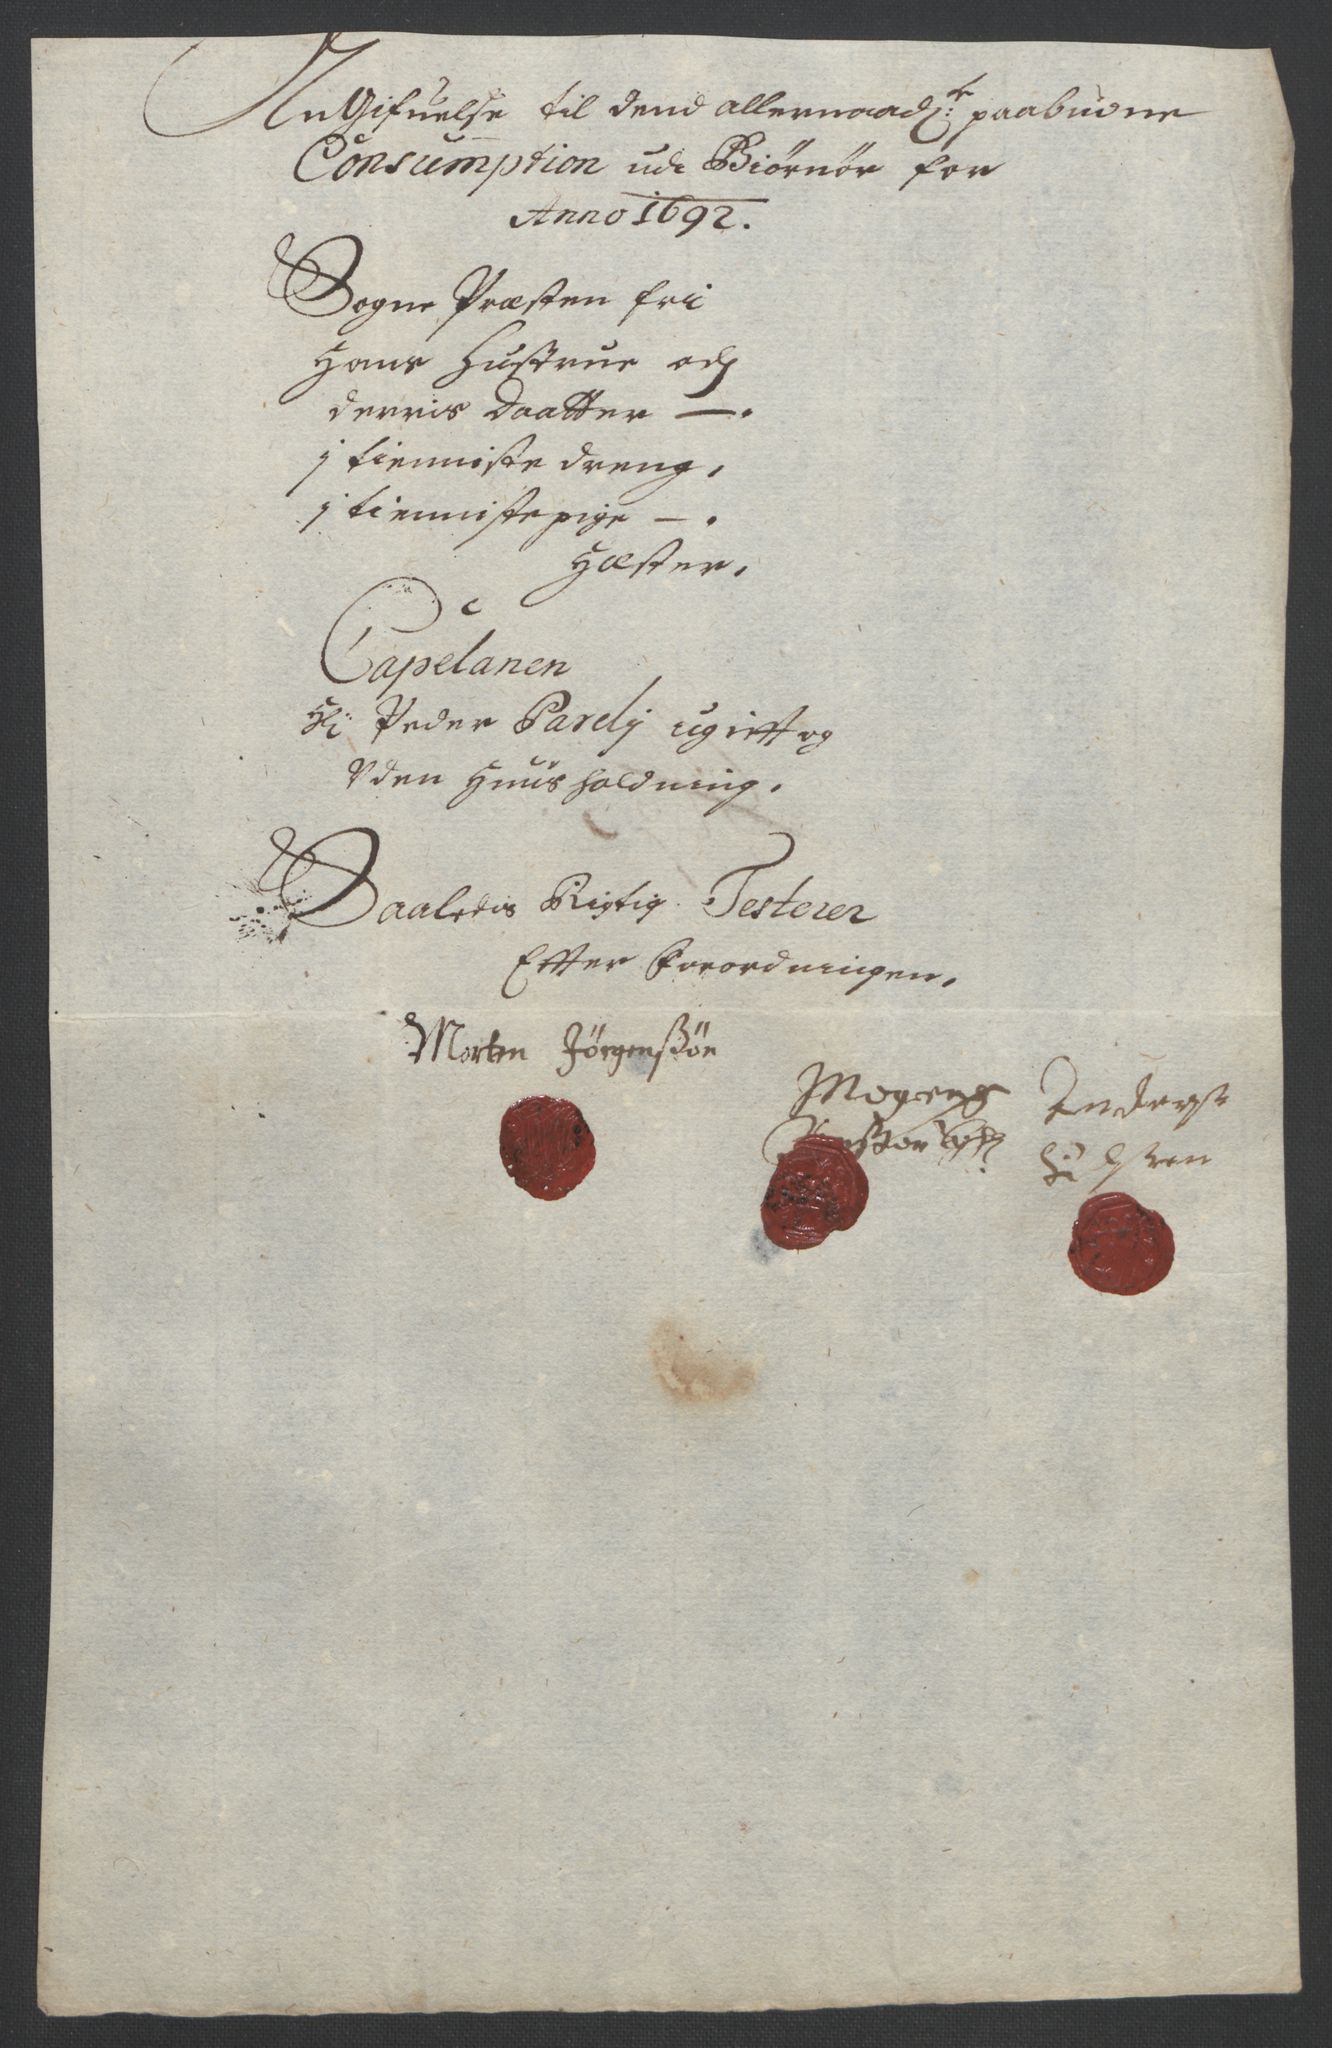 AnGifuelse til dend allernaadg:te paabudne
Consumption udi Biörnör for
Anno 1692.
Sogne Præsten fri
Hans Hustrue och
derris Daatter —.
j tienniste dreng.
j tienniste pige —.
Hæster.
Capelanen
Hr: Peder Parelj ugift og
Uden Huus holdning.
Saaledis Rigtig Testerer
Efter Forordningen.
Morten Jörgensön
Mogens Anders